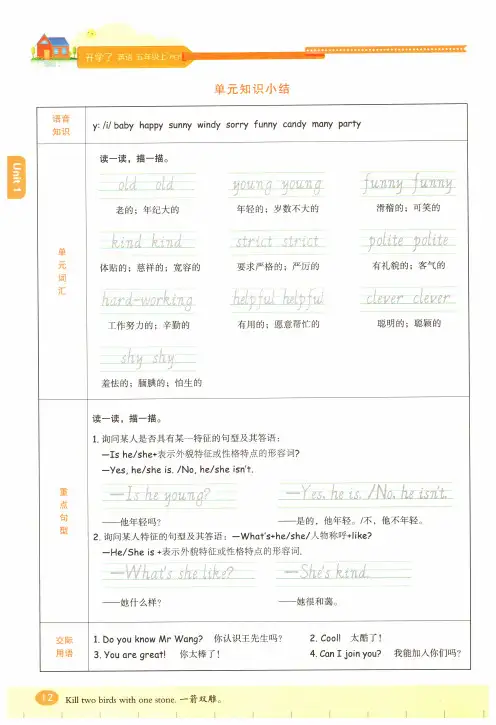 开学了 英语 五年级上 PEP
单元知识小结
Unit 1
语音
知识
y: /i/ baby happy sunny windy sorry funny candy many party
单
元
词
汇
读一读，描一描。
old old
young young
funny funny
老的；年纪大的
年轻的；岁数不大的
滑稽的；可笑的
kind kind
strict strict
polite polite
体贴的；慈祥的；宽容的
要求严格的；严厉的
有礼貌的；客气的
hard-working
helpful helpful
clever clever
工作努力的；辛勤的
有用的；愿意帮忙的
聪明的；聪颖的
shy shy
羞怯的；腼腆的；怕生的
重
点
句
型
读一读，描一描。
1. 询问某人是否具有某一特征的句型及其答语：
—Is he/she+表示外貌特征或性格特点的形容词?
—Yes, he/she is. /No, he/she isn't.
—Is he young?
—Yes, he is. /No, he isn't.
——他年轻吗?
——是的，他年轻。/不，他不年轻。
2. 询问某人特征的句型及其答语：—What's+he/she/人物称呼+like?
—He/She is +表示外貌特征或性格特点的形容词.
—What's she like?
—She's kind.
——她什么样?
——她很和蔼。
交际
用语
1. Do you know Mr Wang? 你认识王先生吗?
2. Cool! 太酷了!
3. You are great! 你太棒了!
4. Can I join you? 我能加入你们吗?
12 Kill two birds with one stone. 一箭双雕。